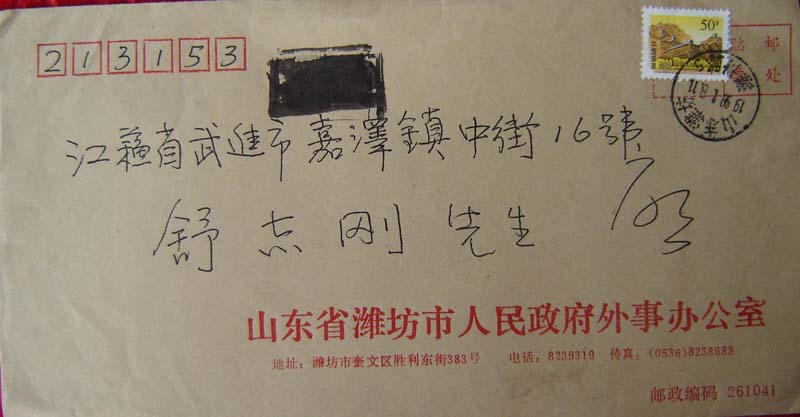 213153
50分
贴 邮
处
江蘓省武進市嘉澤鎮中街16號
舒志刚先生 启
山东省潍坊市人民政府外事办公室
地址：潍坊市奎文区胜利东街383号 电话：8239319 传真：(0536)8238688
邮政编码 261041